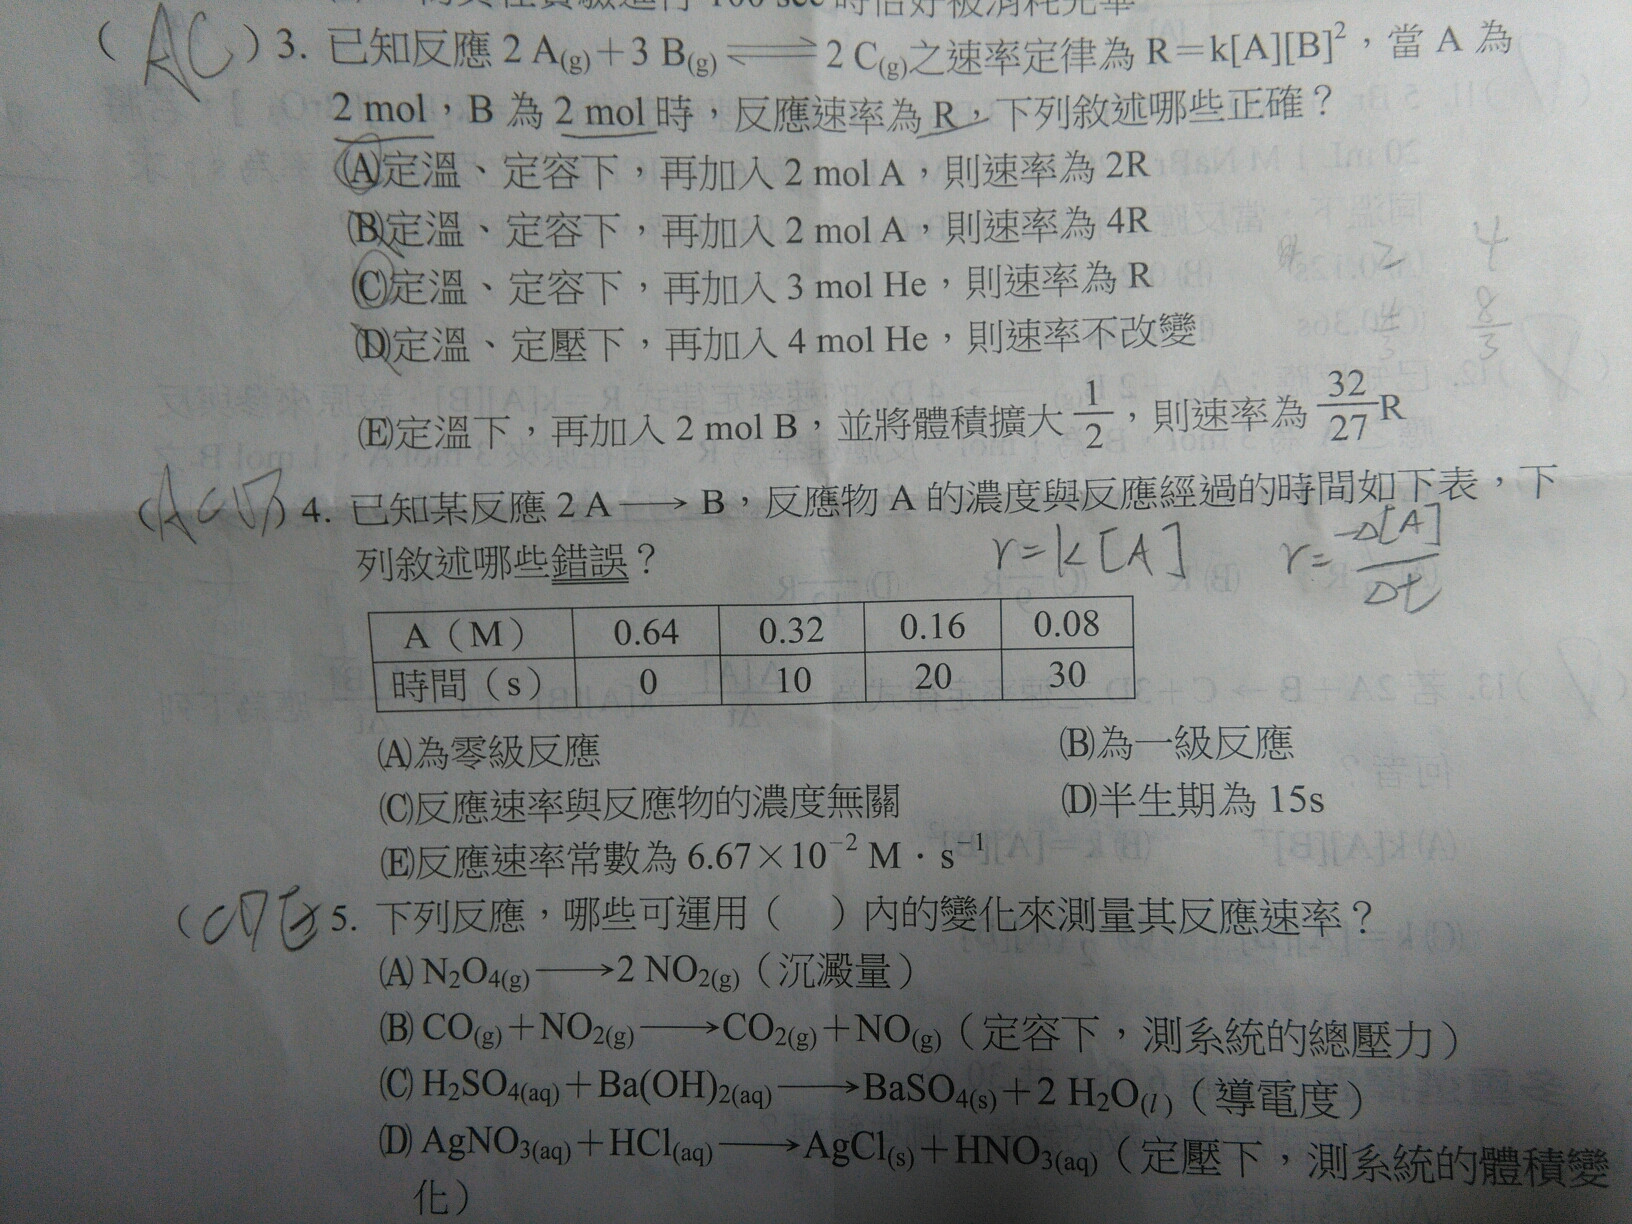 (AC)3. 已知反應 2 A(g)+3 B(g)⇌2 C(g)之速率定律為 R=k[A][B]²,當 A 為
2 mol,B 為 2 mol時,反應速率為 R,下列敘述哪些正確?
(A)定溫、定容下,再加入 2 mol A,則速率為 2R
(B)定溫、定容下,再加入 2 mol A,則速率為 4R
(C)定溫、定容下,再加入 3 mol He,則速率為 R
(D)定溫、定壓下,再加入 4 mol He,則速率不改變
(E)定溫下,再加入 2 mol B,並將體積擴大 1/2,則速率為 32/27 R
2 4
4/3 8/3
(ACD)4. 已知某反應 2 A⟶B,反應物 A 的濃度與反應經過的時間如下表,下
列敘述哪些錯誤?
r=k[A] r=-Δ[A]/Δt
A(M) 0.64 0.32 0.16 0.08
時間(s) 0 10 20 30
(A)為零級反應 (B)為一級反應
(C)反應速率與反應物的濃度無關 (D)半生期為 15s
(E)反應速率常數為 6.67×10⁻² M・s⁻¹
(CDE 5. 下列反應,哪些可運用( )內的變化來測量其反應速率?
(A) N₂O₄(g)⟶2 NO₂(g)(沉澱量)
(B) CO(g)+NO₂(g)⟶CO₂(g)+NO(g)(定容下,測系統的總壓力)
(C) H₂SO₄(aq)+Ba(OH)₂(aq)⟶BaSO₄(s)+2 H₂O(l)(導電度)
(D) AgNO₃(aq)+HCl(aq)⟶AgCl(s)+HNO₃(aq)(定壓下,測系統的體積變
化)